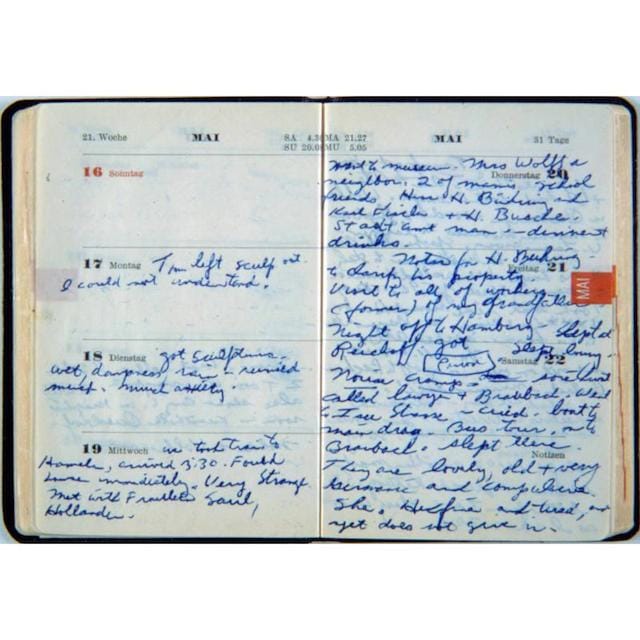 21. Woche MAI SA 4.30 MA 21.27
SU 20.0 MU 5.05
16 Sonntag
17 Montag Tom left sculp out.
I could not understand.
18 Dienstag got sculptures.
wet, dampness rain - ruined
much. much anxiety.
19 Mittwoch we took train to
Hameln, arrived 3:30. Found
house immediately. Very Strange
Met with Fraulein Saul,
Hollander.
MAI 31 Tage
went to museum. Mrs Wolff a
Donnerstag 20
neighbor, 2 of mama's school
friends, Herr H. Bühring and
Karl + H. Busche.
Stadt amt man - dinner
drinks.
Notar for H. Buhring
Freitag 21
to his property.
Visit to all of workers
(former) of my grandfather
Night off to Hamburg - slept at
Reichshof got
Samstag 22
Period
Nouse cramps sore
called lawyer + Brobach. Went
to Stone - cried. boat to
main drag. Bus tour, on to
Brorbach. Slept there.
Notizen
They are lovely, old + very
Germanic and compulsive
She. and tired, and
yet does not give in.
MAI